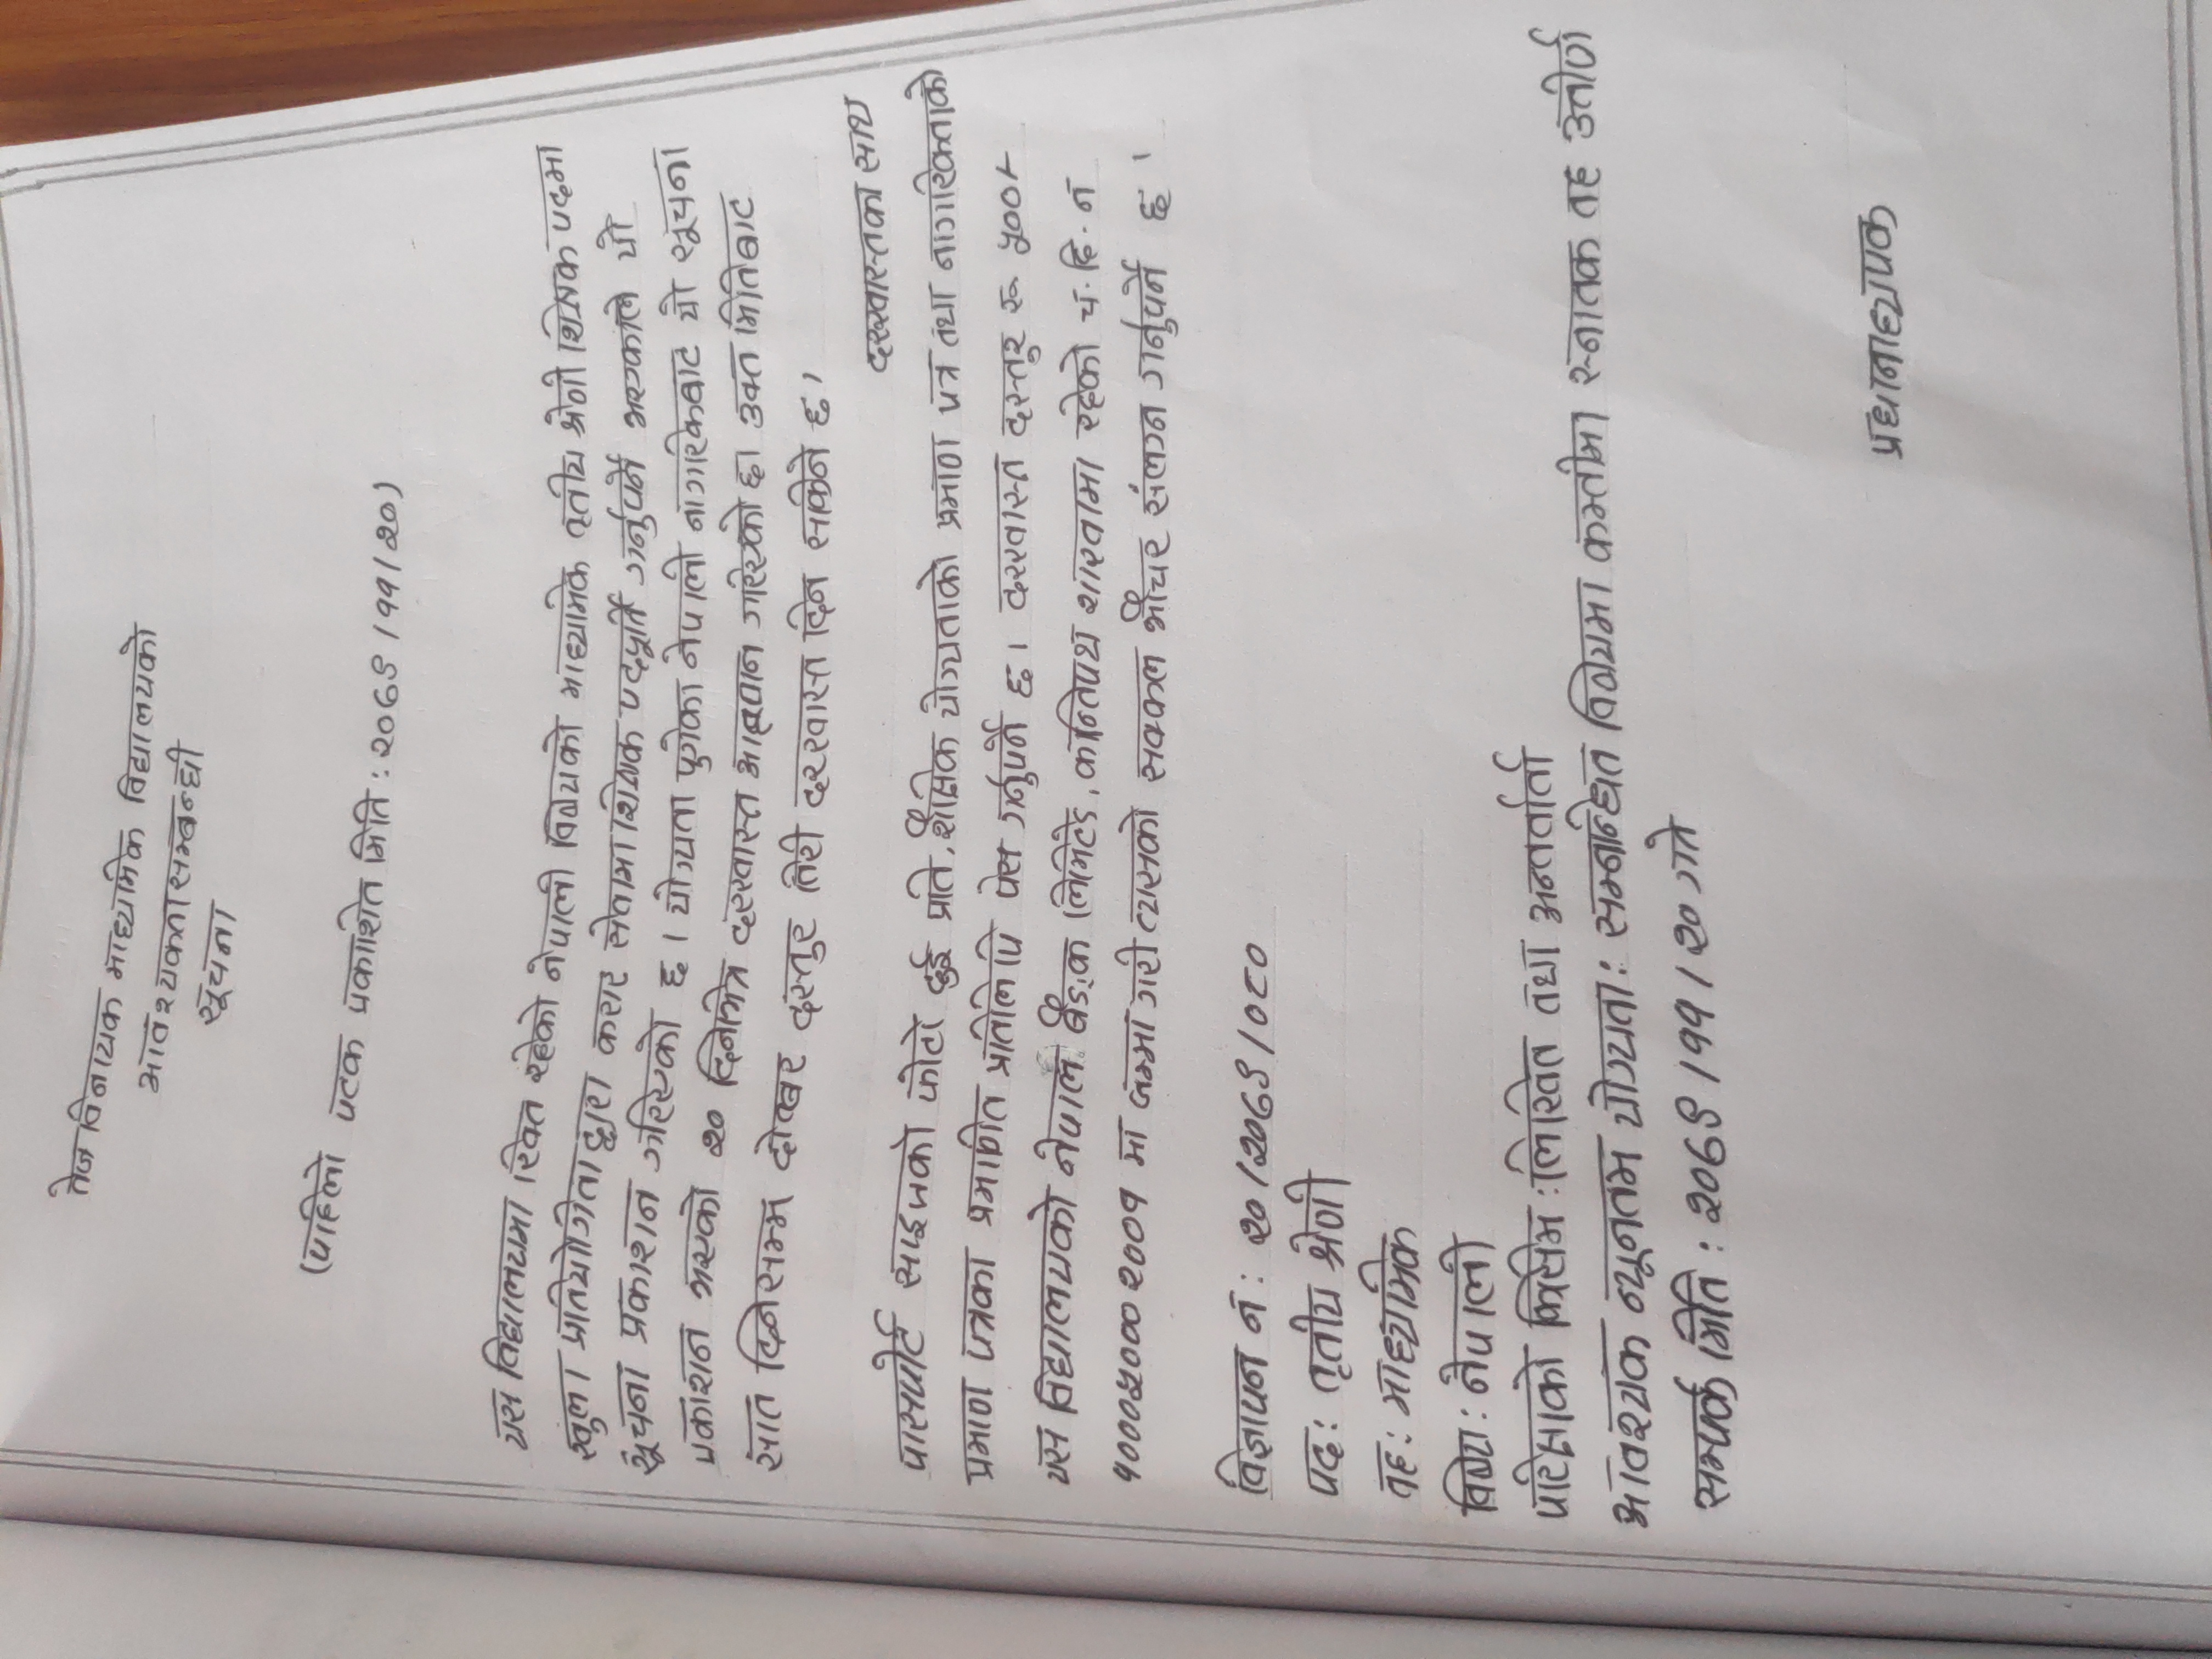 तेज विनायक माध्यमिक विद्यालयको
आवश्यकतासम्बन्धी
सूचना
(पहिलो पटक प्रकाशित मिति : २०७९ / ११ / २०)
यस विद्यालयमा रिक्त रहेको नेपाली विषयको माध्यमिक तृतीय श्रेणी शिक्षक पदमा
खुला प्रतियोगिताद्वारा करार सेवामा शिक्षक पदपूर्ति गर्नुपर्ने भएकाले यो
सूचना प्रकाशन गरिएको छ । योग्यता पुगेका नेपाली नागरिकबाट यो सूचना
प्रकाशन भएको २० दिनभित्र दरखास्त आह्वान गरिएको छ। उक्त मितिबाट
सात दिनसम्म दोब्बर दस्तुर तिरी दरखास्त दिन सकिने छ।
दरखास्तका साथ
पासपोर्ट साइजको फोटो दुई प्रति, शैक्षिक योग्यताको प्रमाण पत्र तथा नागरिकताको
प्रमाण पत्रका प्रमाणित प्रतिलिपि पेस गर्नुपर्ने छ। दरखास्त दस्तुर रु ५००/-
यस विद्यालयको नेपाल बैङ्क लिमिटेड, कान्तिपथ शाखामा रहेको च. दि. न
१०००५०००२००१ मा जम्मा गरी त्यसको सक्कल भौचर संलग्न गर्नुपर्ने छ ।
विज्ञापन नं : २० / २०७९ / ०८०
पद : तृतीय श्रेणी
तह : माध्यमिक
विषय : नेपाली
परिक्षाको किसिम : लिखित तथा अन्तर्वार्ता
आवश्यक न्यूनतम योग्यता : सम्बन्धित विषयमा कम्तीमा स्नातक तह उत्तीर्ण
सम्पर्क मिति : २०७९ / ११ / २० गते
प्रधानाध्यपक